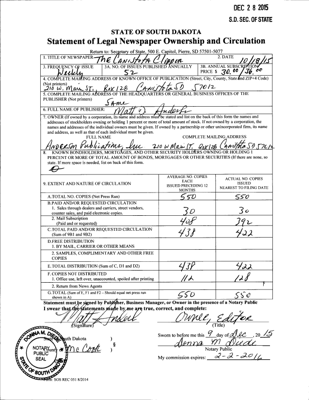 DEC 28 2015
S.D. SEC. OF STATE
STATE OF SOUTH DAKOTA
Statement of Legal Newspaper Ownership and Circulation
Return to: Secretary of State, 500 E. Capitol, Pierre, SD 57501-5077
1. TITLE OF NEWSPAPER The Canistota Clipper 2. DATE 10/8/15
3. FREQUENCY OF ISSUE Weekly 3A. NO. OF ISSUES PUBLISHED ANNUALLY 52 3B. ANNUAL SUBSCRIPTION PRICE $ 30.00/36.00
4. COMPLETE MAILING ADDRESS OF KNOWN OFFICE OF PUBLICATION (Street, City, County, State and ZIP+4 Code) (Not printers)
210 W. Main St. Box 128 Canistota SD 57012
5. COMPLETE MAILING ADDRESS OF THE HEADQUARTERS OR GENERAL BUSINESS OFFICES OF THE PUBLISHER (Not printers)
Same
6. FULL NAME OF PUBLISHER: Matt Anderson
7. OWNER (If owned by a corporation, its name and address must be stated and list on the back of this form the names and addresses of stockholders owning or holding 1 percent or more of total amount of stock. If not owned by a corporation, the names and addresses of the individual owners must be given. If owned by a partnership or other unincorporated firm, its name and address, as well as that of each individual must be given.
FULL NAME COMPLETE MAILING ADDRESS
Anderson Publications, Inc 210 W Main St. Box 128 Canistota SD 57012
8. KNOWN BONDHOLDERS, MORTGAGES, AND OTHER SECURITY HOLDERS OWNING OR HOLDING 1 PERCENT OR MORE OF TOTAL AMOUNT OF BONDS, MORTGAGES OR OTHER SECURITIES (If there are none, so state. If more space is needed, list on back of this form.
9. EXTENT AND NATURE OF CIRCULATION
AVERAGE NO. COPIES EACH ISSUES PRECEDING 12 MONTHS
ACTUAL NO. COPIES ISSUED NEAREST TO FILING DATE
A. TOTAL NO. COPIES (Net Press Run) 550 550
B. PAID AND/OR REQUESTED CIRCULATION
1. Sales through dealers and carriers, street vendors, counter sales, and paid electronic copies. 30 30
2. Mail Subscription (Paid and or requested) 408 392
C. TOTAL PAID AND/OR REQUESTED CIRCULATION (Sum of 9B1 and 9B2) 438 422
D. FREE DISTRIBUTION
1. BY MAIL, CARRIER OR OTHER MEANS
2. SAMPLES, COMPLIMENTARY AND OTHER FREE COPIES
E. TOTAL DISTRIBUTION (Sum of C, D1 and D2) 438 422
F. COPIES NOT DISTRIBUTED
1. Office use, left over, unaccounted, spoiled after printing 112 128
2. Return from News Agents
G. TOTAL (Sum of E, F1 and F2 - Should equal net press run shown in A) 550 550
Statement must be signed by Publisher, Business Manager, or Owner in the presence of a Notary Public
I swear that the statements made by me are true, correct, and complete:
Owner, Editor
(Signature) (Title)
South Dakota
McCook
Sworn to before me this 9 day of Dec 2015
Donna M Diede
Notary Public
My commission expires: 2-2-2016
DONNA M. DIEDE
NOTARY PUBLIC
SEAL
STATE OF SOUTH DAKOTA